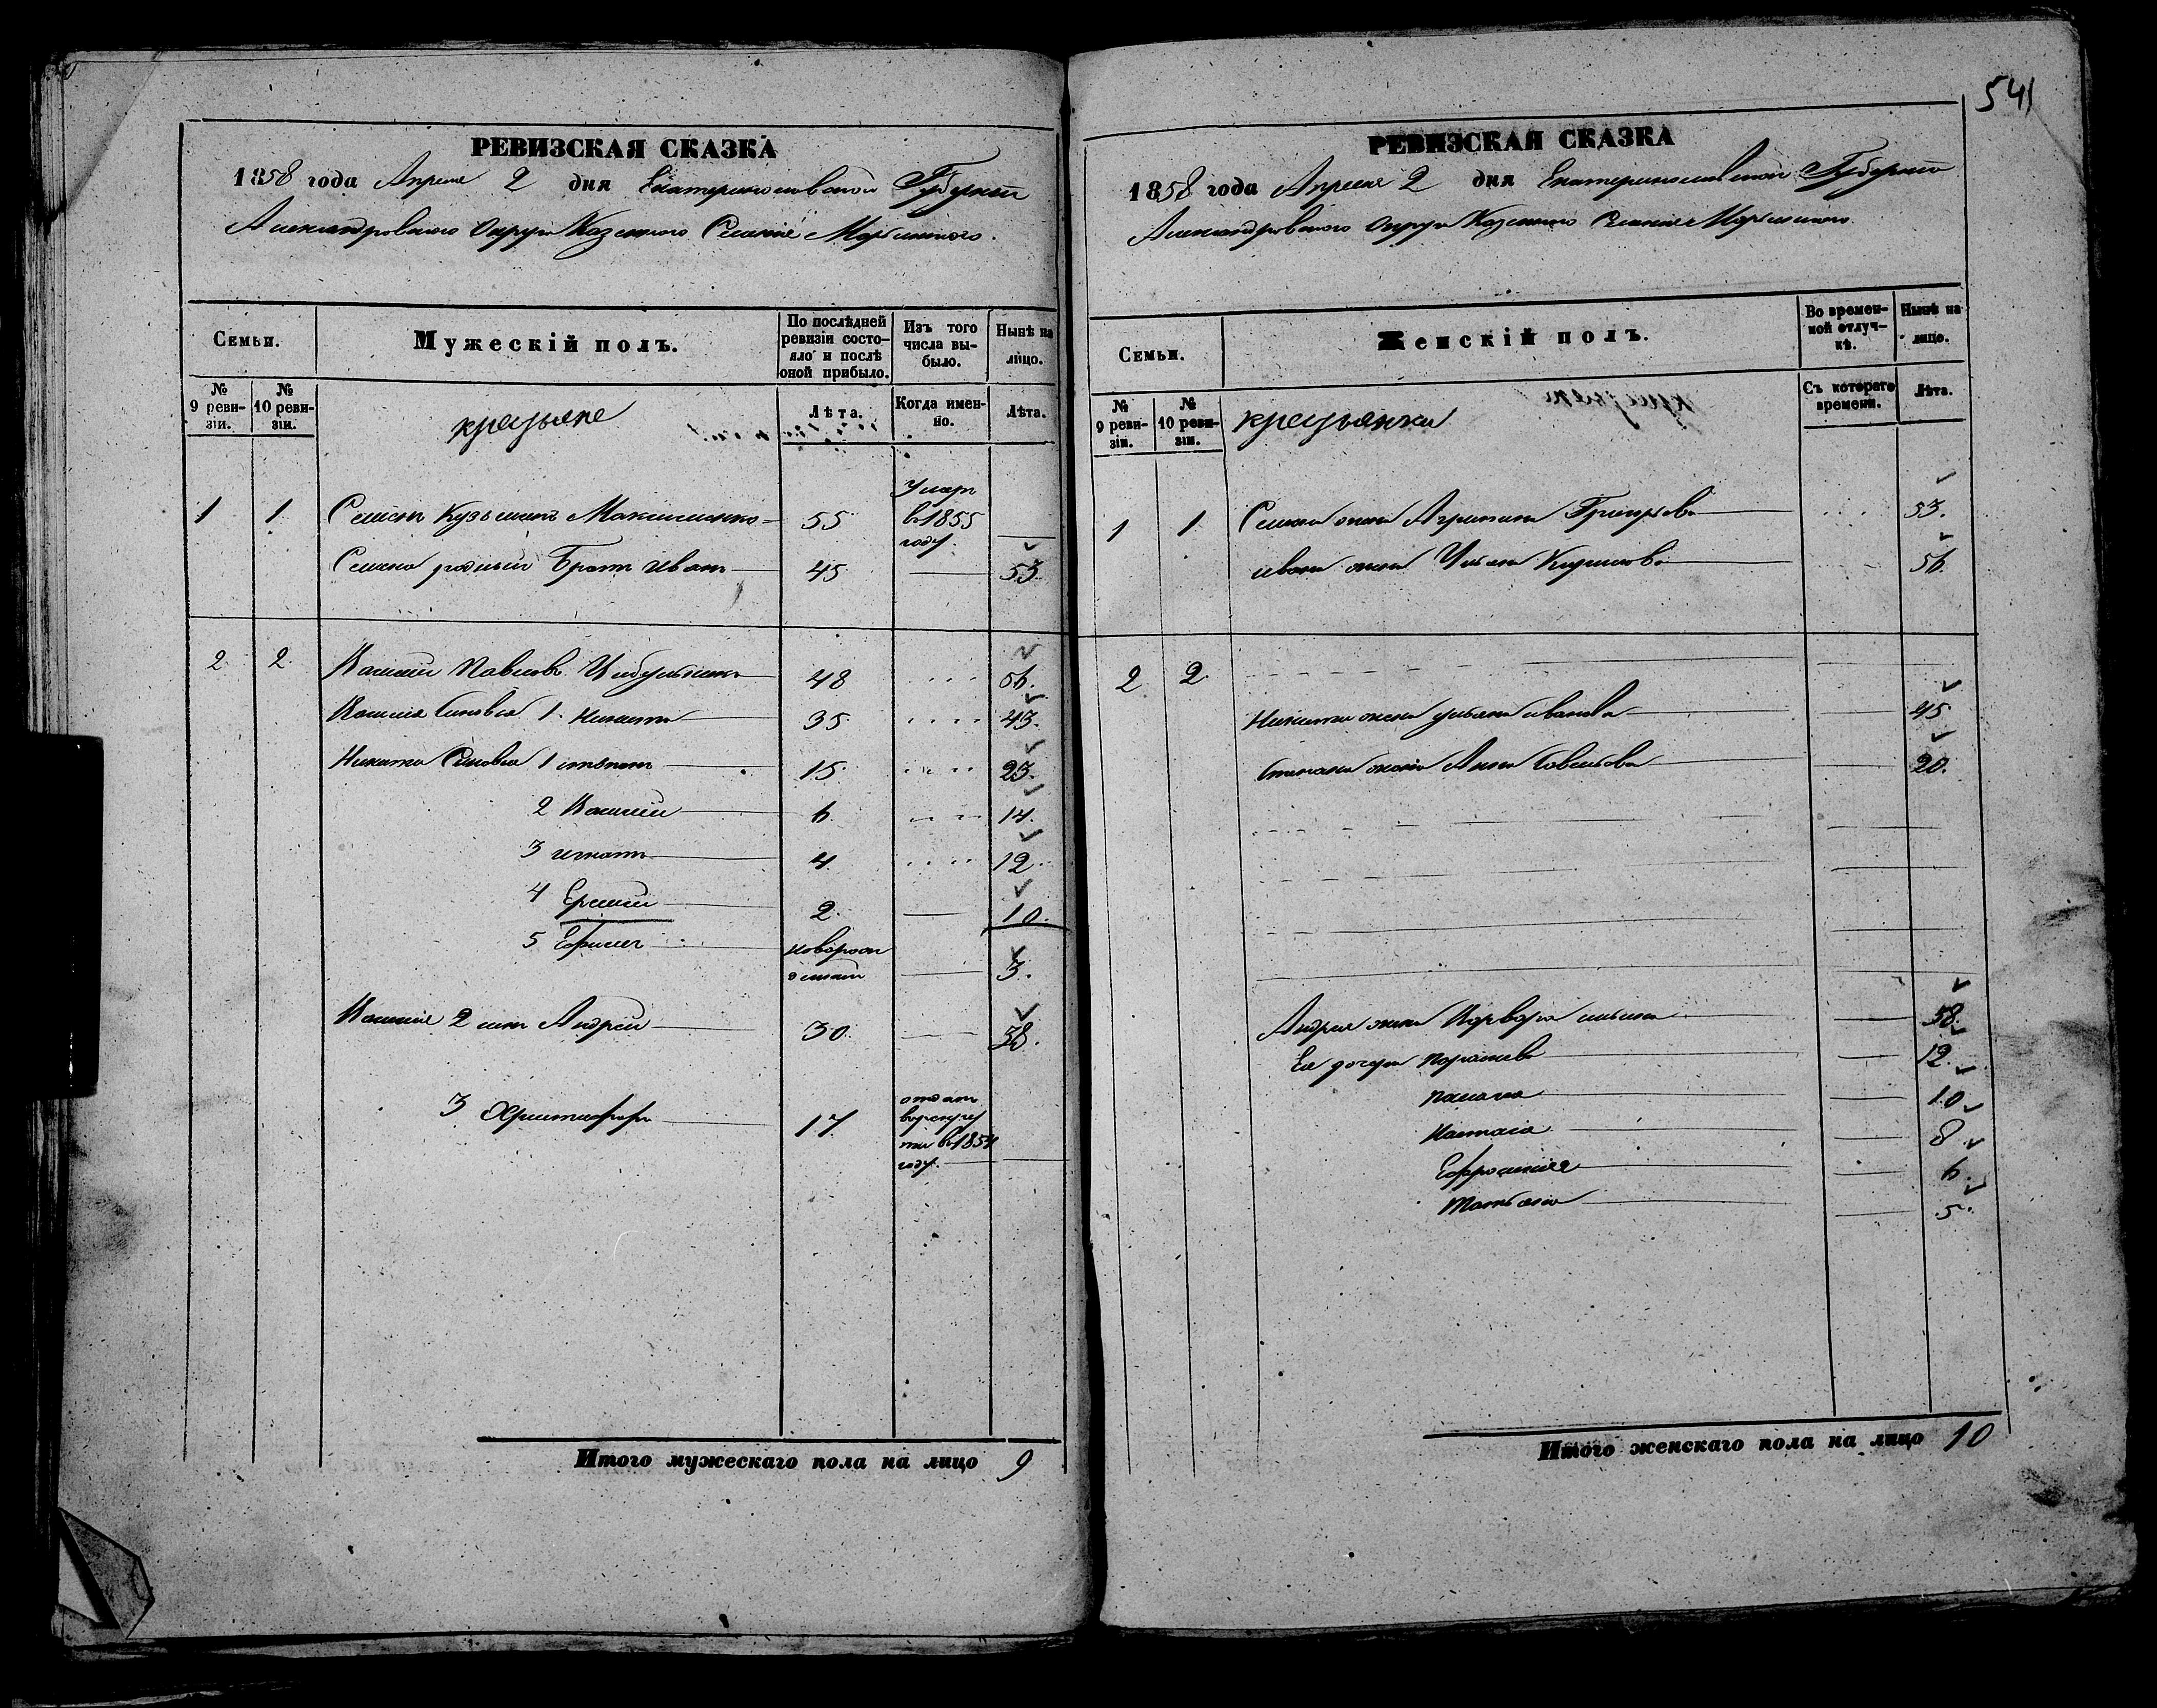 541
РЕВИЗСКАЯ СКАЗКА
1858 года Апреля 2 дня Екатеринославской Губернии
Александровского Округа Казенного Селения
Семьи.
Мужескій полъ.
По послѣдней ревизіи состояло и послѣ оной прибыло.
Изъ того числа выбыло.
Нынѣ на лицо.
№ 9 ревизіи.
№ 10 ревизіи.
крестьяне
Лѣта.
Когда именно.
Лѣта.
1 1 Семенъ Кузьминъ Максименко 55 Умеръ в 1855 году
Семена родный Братъ Иванъ 45 53.
2. 2. Василий Павловъ 48 56.
Василия Сыновья 1. Никита 35 43.
Никиты Сыновья 1 степанъ 15. 23.
2 Василий 6 14.
3 игнатъ 4 12.
4 2. 10.
5 Ефимъ новорожденный 3.
Василия 2 сын Андрей 30 38.
3 Христофоръ 17 отдан в рекруты в 1854 году
Итого мужескаго пола на лицо 9
РЕВИЗСКАЯ СКАЗКА
1858 года Апреля 2 дня Екатеринославской Губернии
Александровского Округа Казенного Селения
Семьи.
Женскій полъ.
Во временной отлучкѣ.
Нынѣ на лицо.
№ 9 ревизіи.
№ 10 ревизіи.
крестьянки
Съ котораго времени.
Лѣта.
1 1. Семена жена Агрипина Григорьева 53.
ивана жена Ульяна 56.
2 2.
Никиты жена ульяна иванова 45
степана жена Анна Савельева 20.
Андрея жена Варвара 38.
Ея дочери 12.
10
8
Ефросиния 6.
Татьяна 5.
Итого женскаго пола на лицо 10